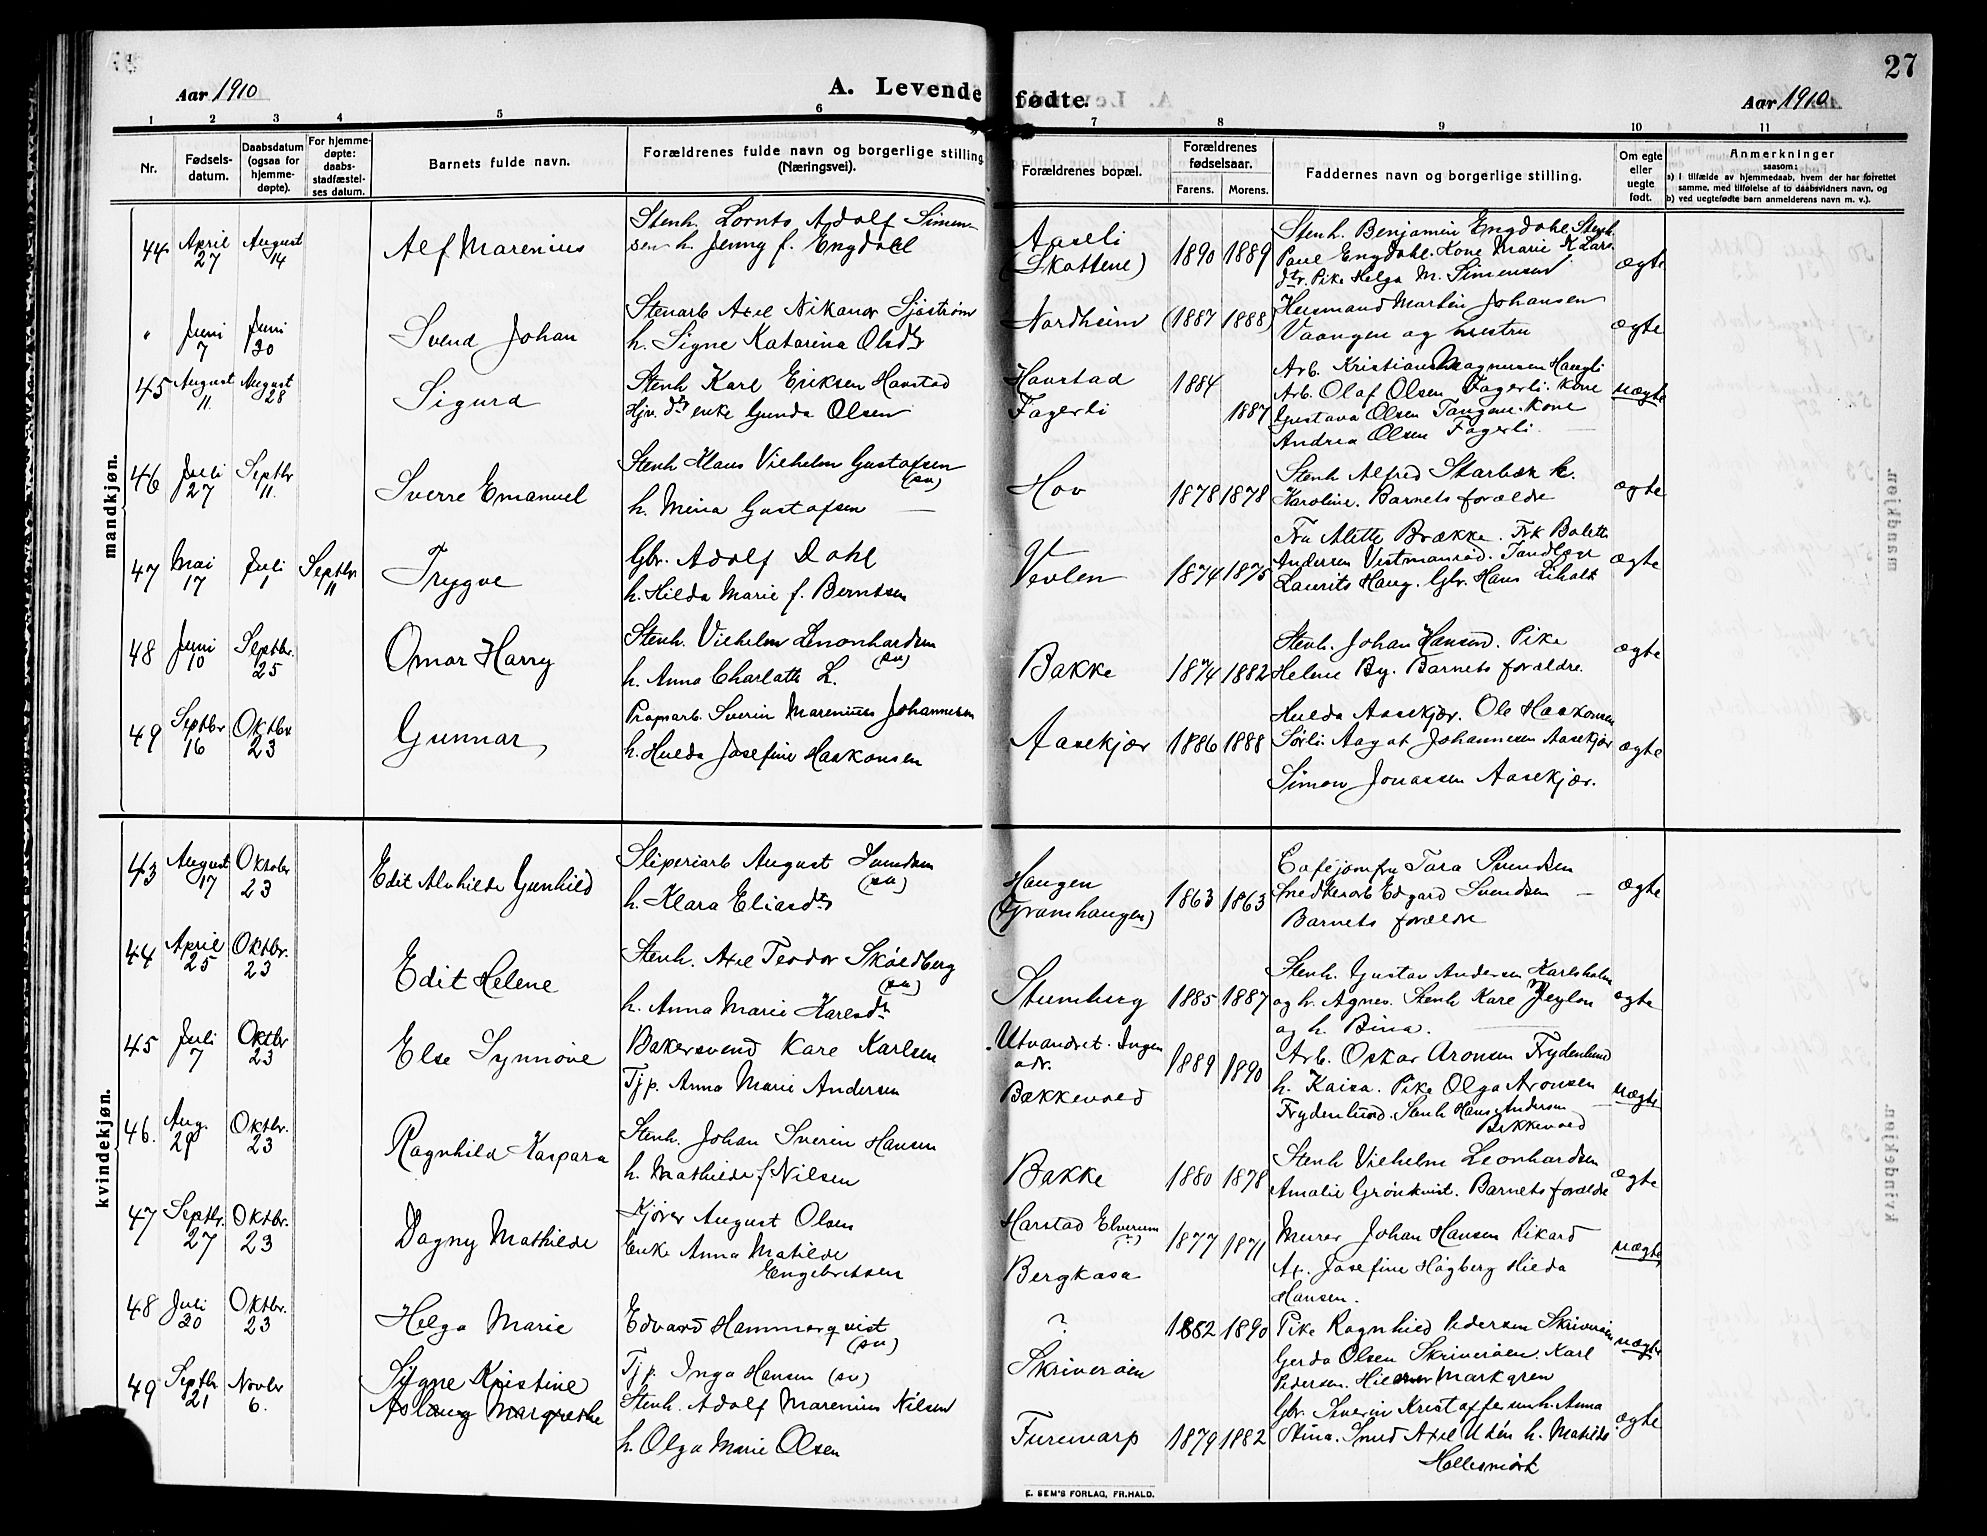 27
Aar 1910
A. Levende fødte.
Aar 1910
1 2 3 4 5 6 7 8 9 10 11
Nr.
Fødsels-
datum.
Daabsdatum
(ogsaa for
hjemme-
døpte).
For hjemme-
døpte:
daabs
stadfæstel-
ses datum.
Barnets fulde navn.
Forældrenes fulde navn og borgerlige stilling
(Næringsvei).
Forældrenes bopæl.
Forældrenes
fødselsaar.
Farens. Morens.
Faddernes navn og borgerlige stilling.
Om egte
eller
uegte
født.
Anmerkninger
saasom:
a) i tilfælde av hjemmedaab, hvem der har forrettet
samme, med tilføielse af to daabsvidners navn, og
b) ved uegtefødte barn anmelderens navn m. v.).
mandkjøn.
44 April 27 August 14
Alf Marenius
Stenh. Lornts Adolf Simen-
sen h. Jenny f. Engdahl
Aaseli
(Skottene)
1890 1889
Stenh. Benjamin Engdahl Stenh.
Paul Engdahl. Kone Marie K. Lars-
dtr. Pike Helga M. Simensen
ægte
" Juni 7 Juni 20
Svend Johan
Stenarb Axel Nikanor Sjøstrøm
h. Signe Katarina Olsdtr
Nordheim
(1887 1888)
Husmand Martin Johansen
Vaangen og hustru
ægte
45 August 11. August 28
Sigurd
Stenh Karl Eriksen Havstad
Hjv. dtr enke Gunda Olsen
Havstad
Fagerli
1884
1887
Arb. Kristian Magnussen Haugli
Arb. Olaf Olsen Fagerli. Kone
Gustava Olsen Tangene. Kone
Andrea Olsen Fagerli.
uægte
46 Juli 27 Septbr 11.
Sverre Emanuel
Stenh Klaus Vilhelm Gustafsen
(sv)
h. Mina Gustafsen
Hov
1878 1878
Stenh Alfred Starbæk h.
Karoline. Barnets forældre
ægte
47 Mai 17 Juli 1 Septbr 11
Trygve
Gbr. Adolf Dahl
h. Hilda Marie f. Berntsen
Vevlen
1874 1875
Fru Alette Brække. Frk Bolette
Andersen Vestmansrød. Tandlæge
Laurits Haug. Gbr. Hans Liholt
ægte
48 Juni 10 Septbr. 25
Omar Harry
Stenh. Vilhelm Lenonhardsen
(sv)
h. Anna Charlotte L.
Bakke
1874 1882
Stenh. Johan Hansen. Pike
Helene By. Barnets forældre.
ægte
49 Septbr 16 Oktbr 23
Gunnar
Propsarb. Sverin Marenius Johannesen
h. Hulda Josefine Haakonsen
Aasekjær
1886 1888
Hulda Aasekjær. Ole Haakonsen
Sørli. Aagot Johannesen Aasekjær
Simon Jonassen Aasekjær.
ægte
kvindekjøn.
43 August 17 Oktober 23
Edit Alvhilde Gunhild
Sliperiarb August Svendsen
(sv)
h. Klara Eliasdtr
Haugen
(Gramhaugen)
1863 1863
Caféjomfru Tora Svendsen
Snedkerarb Edgard Svendsen
Barnets forældre
ægte
44 April 25 Oktbr. 23
Edit Helene
Stenh. Axel Teodor Skøldberg
(sv)
h. Anna Marie Karlsdtr
Stumberg
1885 1887
Stenh. Gustav Andersen Karlsholm
og h. Agnes. Stenh Karl Jeglon
og h. Bina.
ægte
45 Juli 7 Oktbr 23
Else Synnøve
Bakersvend Karl Karlsen
Tjp. Anna Marie Andersen
Utvandret. Ingen
adr.
Bakkevold
1889 1890
Arb. Oskar Aronsen Frydenlund
h. Kaisa. Pike Olga Aronsen
Frydenlund. Stenh Hans Andersen
Bakkevold
uægte
46. Aug. 29 Oktbr. 23
Ragnhild Kaspara
Stenh. Johan Sverin Hansen
h. Mathilde f. Nilsen
Bakke
1880 1878
Stenh Vilhelm Leonhardsen
Amalie Grönkvist. Barnets forældre
ægte
47 Septbr. 27 Oktbr. 23
Dagny Mathilde
Kjører August Olsen
Enke Anna Matilde
Engebretsen
Harstad Elverum
(?)
Bergkasa
1877 1871
Murer Johan Hansen Rikard
Ax. Josefine Högberg Hilda
Hansen.
uægte
48 Juli 20 Oktbr. 23
Helga Marie
Edvard Hammarqvist
(sv)
Tjp. Inga Hansen (sv)
?
Skriverøen
1882 1890
Pike Ragnhild Pedersen Skriverøen
Gerda Olsen Skriverøen. Karl
Pedersen. Hilmer Markgren
uægte
49 Septbr 21 Novbr 6.
Signe Kristine
Aslaug Margrethe
Stenh. Adolf Marenius Nilsen
h. Olga Marie Olsen
Furevarp
1879 1882
Gbr. Severin Kristoffersen h. Anna
Stina. Smed Axel Udén h. Matilde
Hellesmörk
ægte
E. SEM'S FORLAG, FR.HALD.